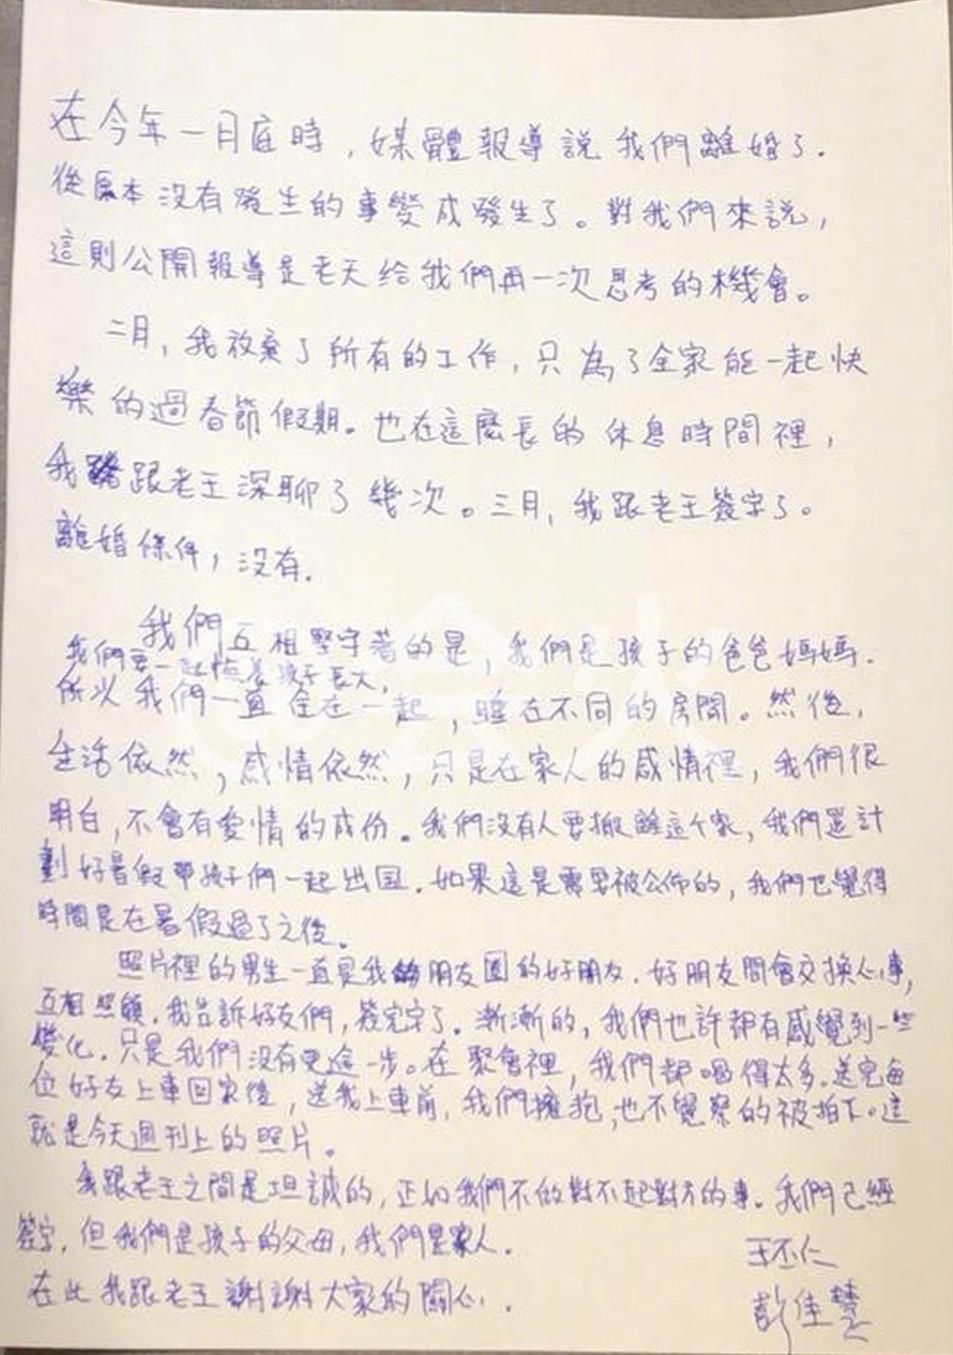 在今年一月底時，媒體報導說我們離婚了．
從原本沒有發生的事變成發生了。對我們來說，
這則公開報導是老天給我們再一次思考的機會。
二月，我放棄了所有的工作，只為了全家能一起快
樂的過春節假期。也在這麼長的休息時間裡，
我跟老王深聊了幾次。三月，我跟老王簽字了。
離婚條件，沒有．
我們互相堅守著的是，我們是孩子的爸爸媽媽．
我們要一起陪養孩子長大，
所以我們一直住在一起，睡在不同的房間。然後，
生活依然，感情依然，只是在家人的感情裡，我們很
明白，不會有愛情的成份。我們沒有人要搬離這个家，我們還計
劃好暑假帶孩子們一起出国．如果這是需要被公佈的，我們也覺得
時間是在暑假過了之後。
照片裡的男生一直是我朋友圈的好朋友．好朋友間會交換心事，
互相照顧．我告訴好友們，簽完字了．漸漸的，我們也許都有感覺到一些
變化．只是我們沒有更進一步。在聚會裡，我們都喝得太多．送完每
位好友上車回家後，送我上車前，我們擁抱，也不覺察的被拍下。這
就是今天週刊上的照片。
我跟老王之間是坦誠的，正如我們不做對不起對方的事。我們已經
簽字，但我們是孩子的父母，我們是家人．
在此我跟老王謝謝大家的關心．
王丕仁
彭佳慧